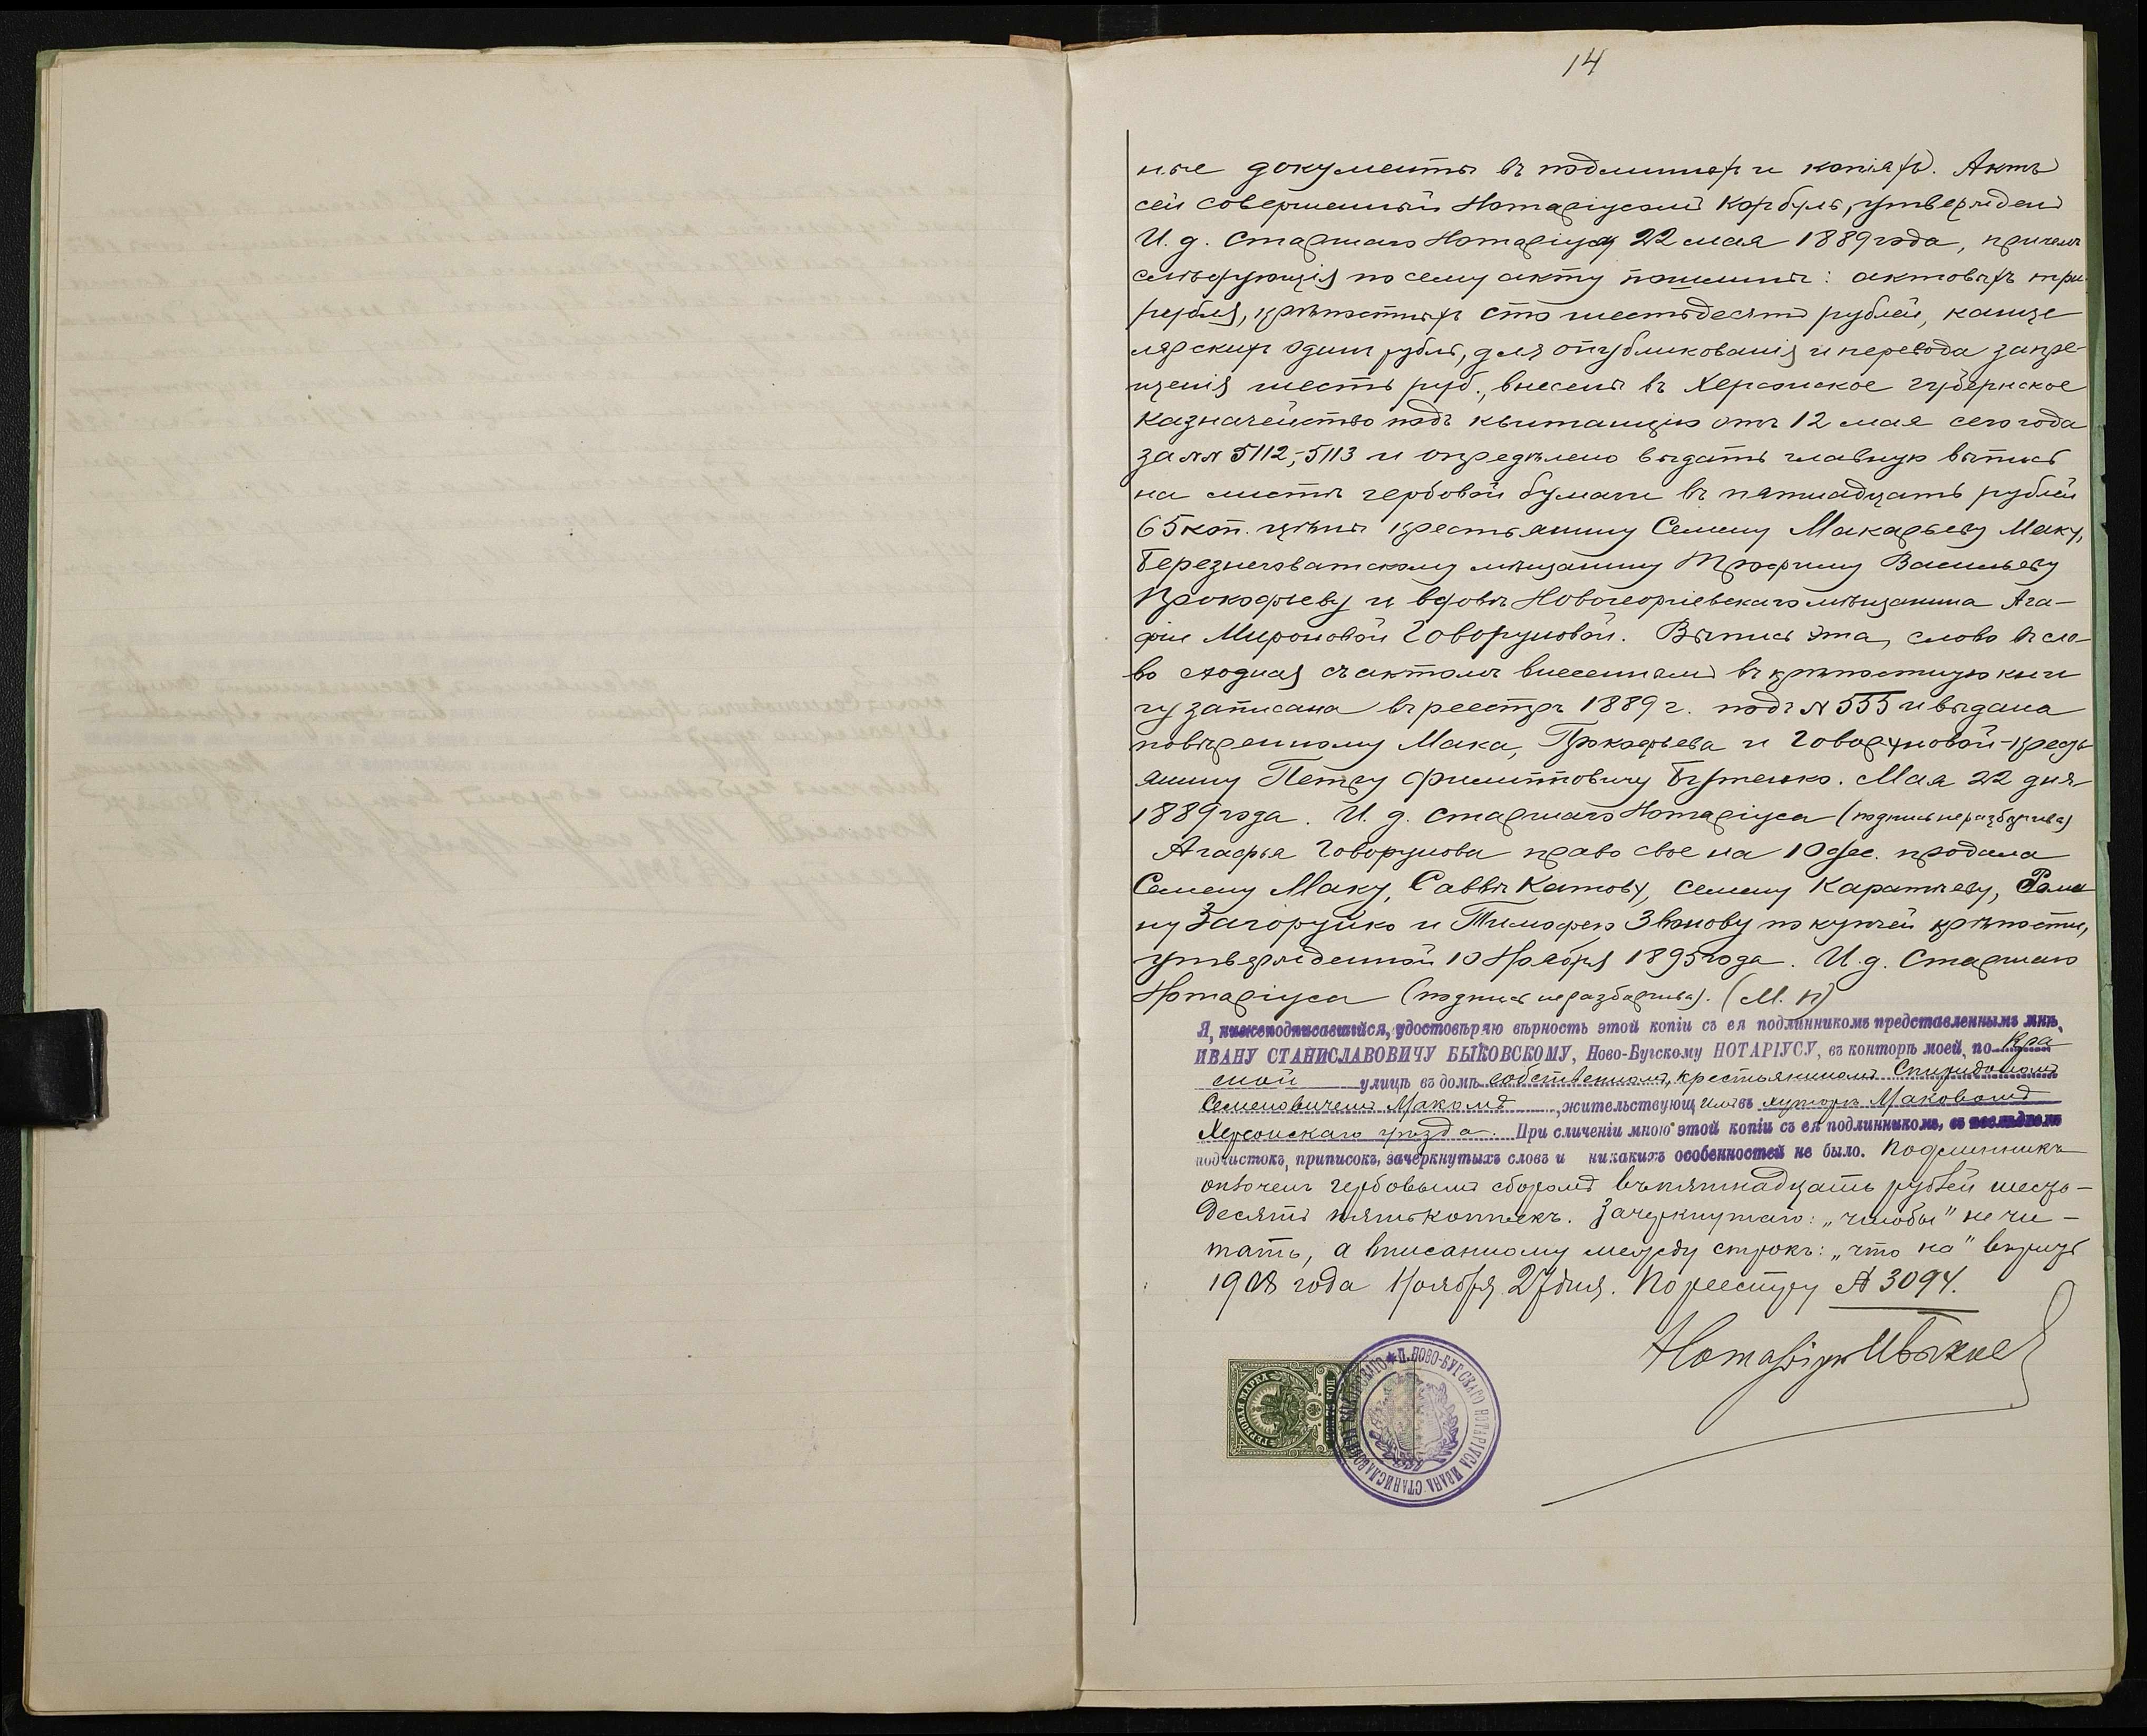 14
ные документы въ подлинник и копіяхъ. Актъ
сей совершенный Нотаріусомъ Корбуль, утвержденъ
И. д. Старшаго Нотаріуса 22 мая 1889 года, причемъ
слѣдующія по сему акту пошлины: актовыхъ три
рубля, крѣпостныхъ сто шестьдесятъ рублей, канце
лярскихъ одинъ рубль, для опубликованія и перевода запре-
щенія шесть руб., внесены въ Херсонское губернское
Казначейство подъ квитанцію отъ 12 мая сего года
за №№ 5112,-5113 и опредѣлено выдать главную выпись
на листѣ гербовой бумаги въ пятнадцать рублей
65 коп. цѣны крестьянину Семену Макарьеву Маку,
Березнеговатскому мѣщанину Трофиму Васильеву
Прокофьеву и вдовѣ Новогеоргіевскаго мѣщанина Ага-
фіи Мироновой Говоруновой. Выпись эта, слово въ сло-
во сходная съ актомъ внесеннымъ въ крѣпостную кни
гу записана въ реестръ 1889 г. подъ № 555 и выдана
повѣренному Мака, Прокофьева и Говоруновой-кресть
янину Петру Филипповичу Бутенко. Мая 22 дня
1889 года. И. д. Старшаго Нотаріуса (подпись неразборчива)
Агафья Говорунова право свое на 10 дес. продала
Семену Маку, Саввѣ Катову, Семену Каратѣеву, Рома
ну Загоруйко и Тимофею Звонову по купчей крѣпости,
утвержденной 10 Ноября 1895 года. И. д. Старшаго
Нотаріуса (подпись неразборчива). (М. п)
Я, нижеподписавшійся, удостовѣряю вѣрность этой копіи съ ея подлинникомъ представленнымъ мнѣ,
ИВАНУ СТАНИСЛАВОВИЧУ БЫКОВСКОМУ, Ново-Бугскому НОТАРІУСУ, въ конторѣ моей, по Кра
сной улицѣ въ домѣ собственномъ, крестьяниномъ Спиридономъ
Семеновичемъ Макомъ, жительствующимъ въ хуторѣ Маковомъ
Херсонскаго уѣзда. При сличеніи мною этой копіи съ ея подлинникомъ, въ послѣднемъ
подчистокъ, приписокъ, зачеркнутыхъ словъ и никакихъ особенностей не было. Подлинникъ
оплоченъ гербовымъ сборомъ въ пятнадцать рублей шесть-
десятъ пять копѣекъ. Зачеркнутаго: „чтобы" не чи-
тать, а вписанному между строкъ: „что на" вѣрить
1908 года Ноября 27 дня. По реестру № 3094.
Нотаріусъ ИБыков
ГЕРБОВАЯ МАРКА 75 КОП
П. НОВО-БУГСКАГО НОТАРІУСА ИВАНА СТАНИСЛАВОВИЧА БЫКОВСКАГО